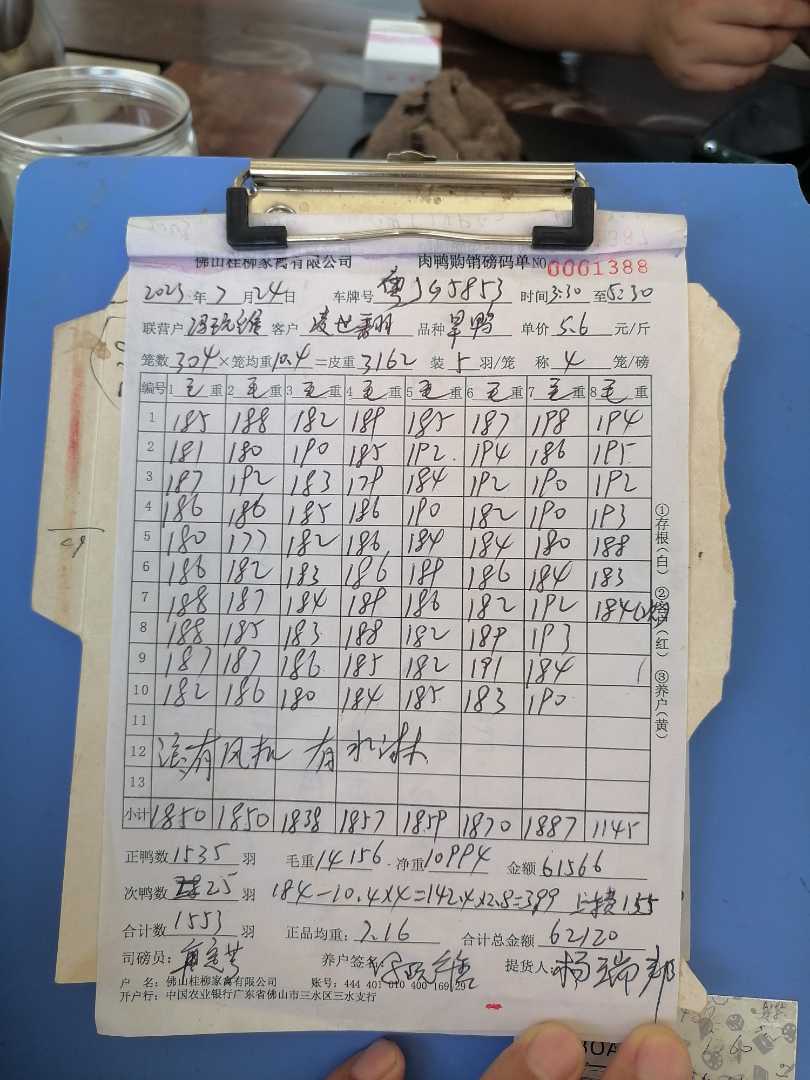 佛山桂柳家禽有限公司 肉鸭购销磅码单 NO 0001388
2023年7月24日 车牌号 粤J95853 时间3:30至5:30
联营户 客户 凌世 品种 旱鸭 单价 5.6 元/斤
笼数304×笼均重10.4=皮重3162 装5羽/笼 称4笼/磅
编号 1毛重 2毛重 3毛重 4毛重 5毛重 6毛重 7毛重 8毛重
1 185 188 182 189 185 187 198 194
2 181 180 190 185 192 194 186 195
3 187 192 183 179 184 192 190 192
4 186 186 185 186 190 182 190 193
5 180 177 182 186 184 184 180 188
6 186 182 183 186 189 186 184 183
7 188 187 184 189 186 182 192 184
8 188 185 183 188 182 189 193
9 187 187 186 185 182 191 184
10 182 186 180 184 185 183 190
11
12 没有风机 有水淋
13
小计 1850 1850 1838 1857 1859 1870 1887 1145
①存根(白) ②客户(红) ③养户(黄)
正鸭数1535羽 毛重14156 净重10994 金额61566
次鸭数25羽 184-10.4×4=142.4×2.8=399 155
合计数1553羽 正品均重:7.16 合计总金额62120
司磅员: 养户签名: 提货人:杨瑞邦
户 名:佛山桂柳家禽有限公司 账号:444 401 010 400 169 297
开户行:中国农业银行广东省佛山市三水区三水支行